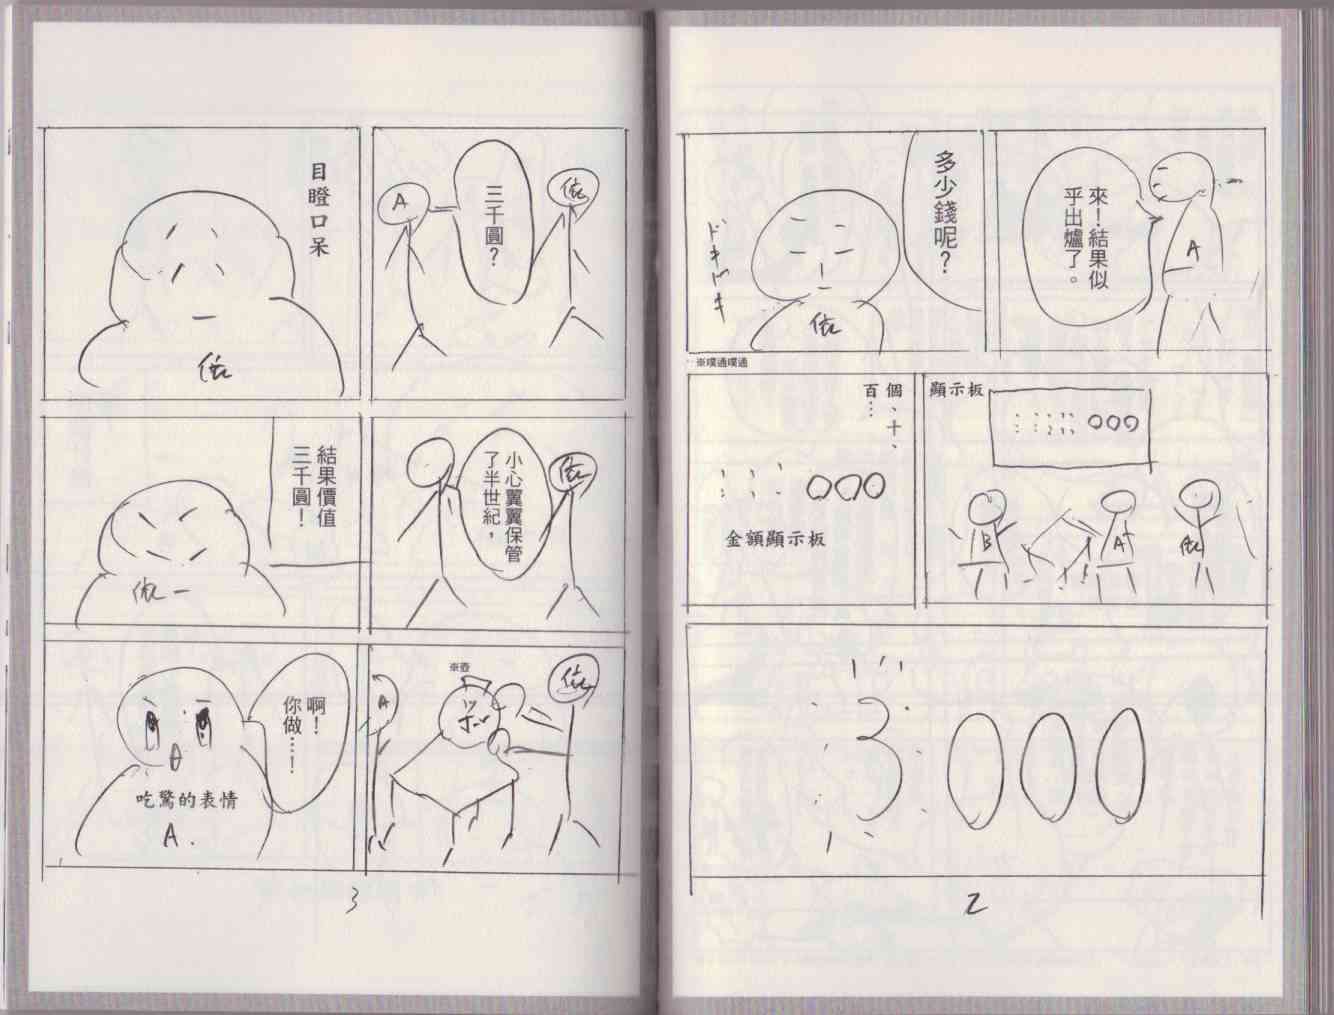 來！結果似
乎出爐了。
A
多少錢呢？
ドキドキ
依
※噗通噗通
顯示板
000
B
A
依
個、十、
百…
000
金額顯示板
3000
2
依
三千圓？
A
目瞪口呆
依
依
小心翼翼保管
了半世紀，
結果價值
三千圓！
依
依
※壺
ツボ
A
啊！
你做……！
吃驚的表情
A.
3